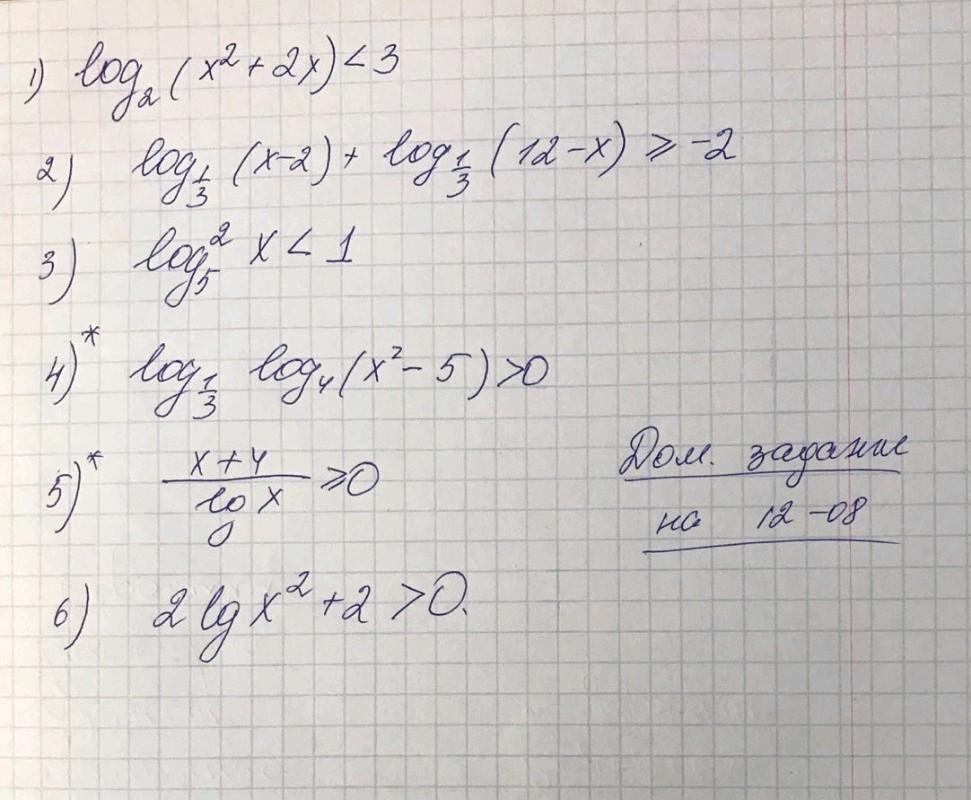 1) log₂(x² + 2x) < 3
2) log_{1/3} (x-2) + log_{1/3} (12-x) ≥ -2
3) log₅² x < 1
4)* log_{1/3} log₄(x² - 5) > 0
5)* (x+4)/(lg x) ≥ 0
Дом. задание
на 12-08
6) 2 lg x² + 2 > 0.